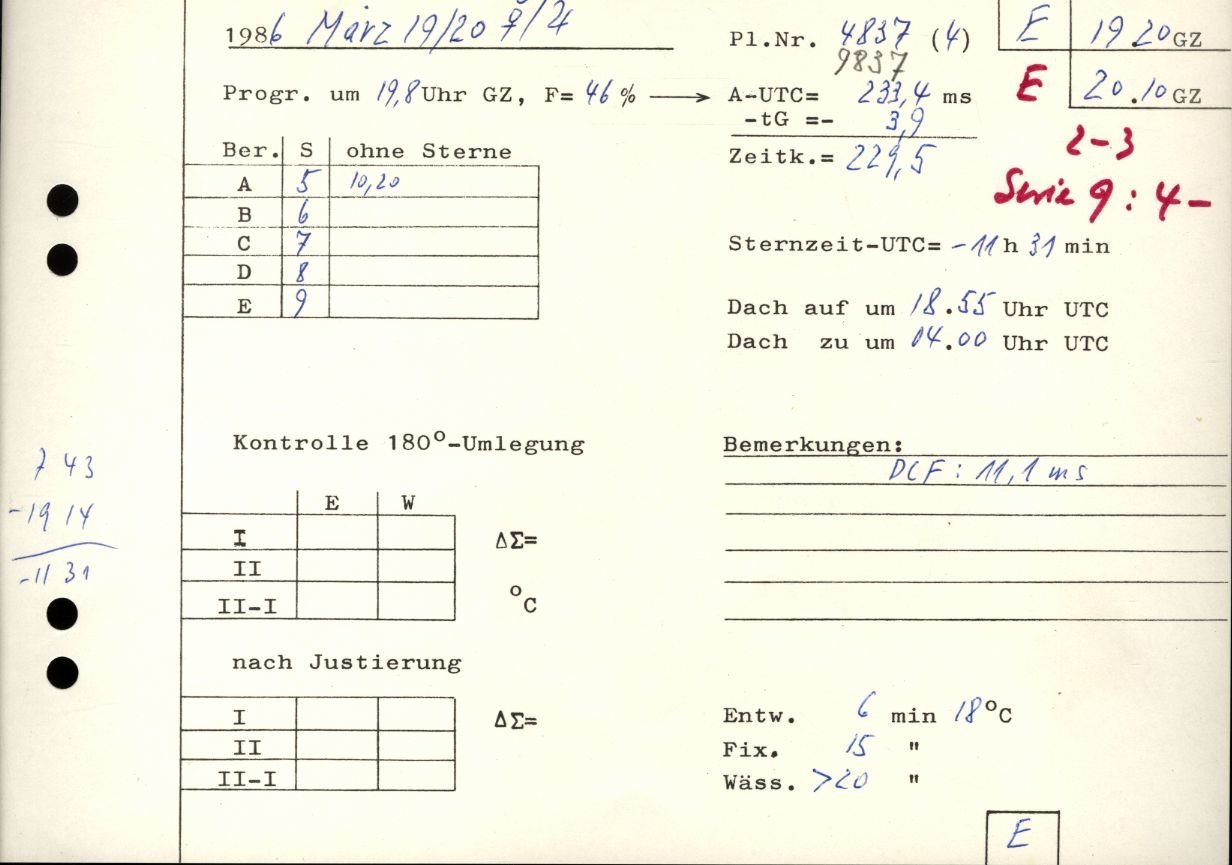 1986 März 19/20 ☿/♃
Pl.Nr. 4837 (4)
9837
E 19 20 GZ
E 20.10 GZ
Progr. um 19,8 Uhr GZ, F= 46 % → A-UTC= 233,4 ms
-tG =- 3,9
Zeitk.= 229,5
2-3
Serie 9: 4-
Ber. S ohne Sterne
A 5 10,20
B 6
C 7
D 8
E 9
Sternzeit-UTC= -11 h 31 min
Dach auf um 18.55 Uhr UTC
Dach zu um 04.00 Uhr UTC
7 43
-19 14
-11 31
Kontrolle 180°-Umlegung
E W
I ΔΣ=
II
II-I °C
Bemerkungen:
DCF: 11,1 ms
nach Justierung
I ΔΣ=
II
II-I
Entw. 6 min 18°C
Fix. 15 "
Wäss. >20 "
E